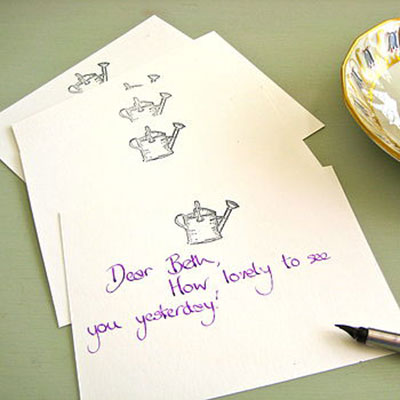 Dear Beth,
How lovely to see
you yesterday!